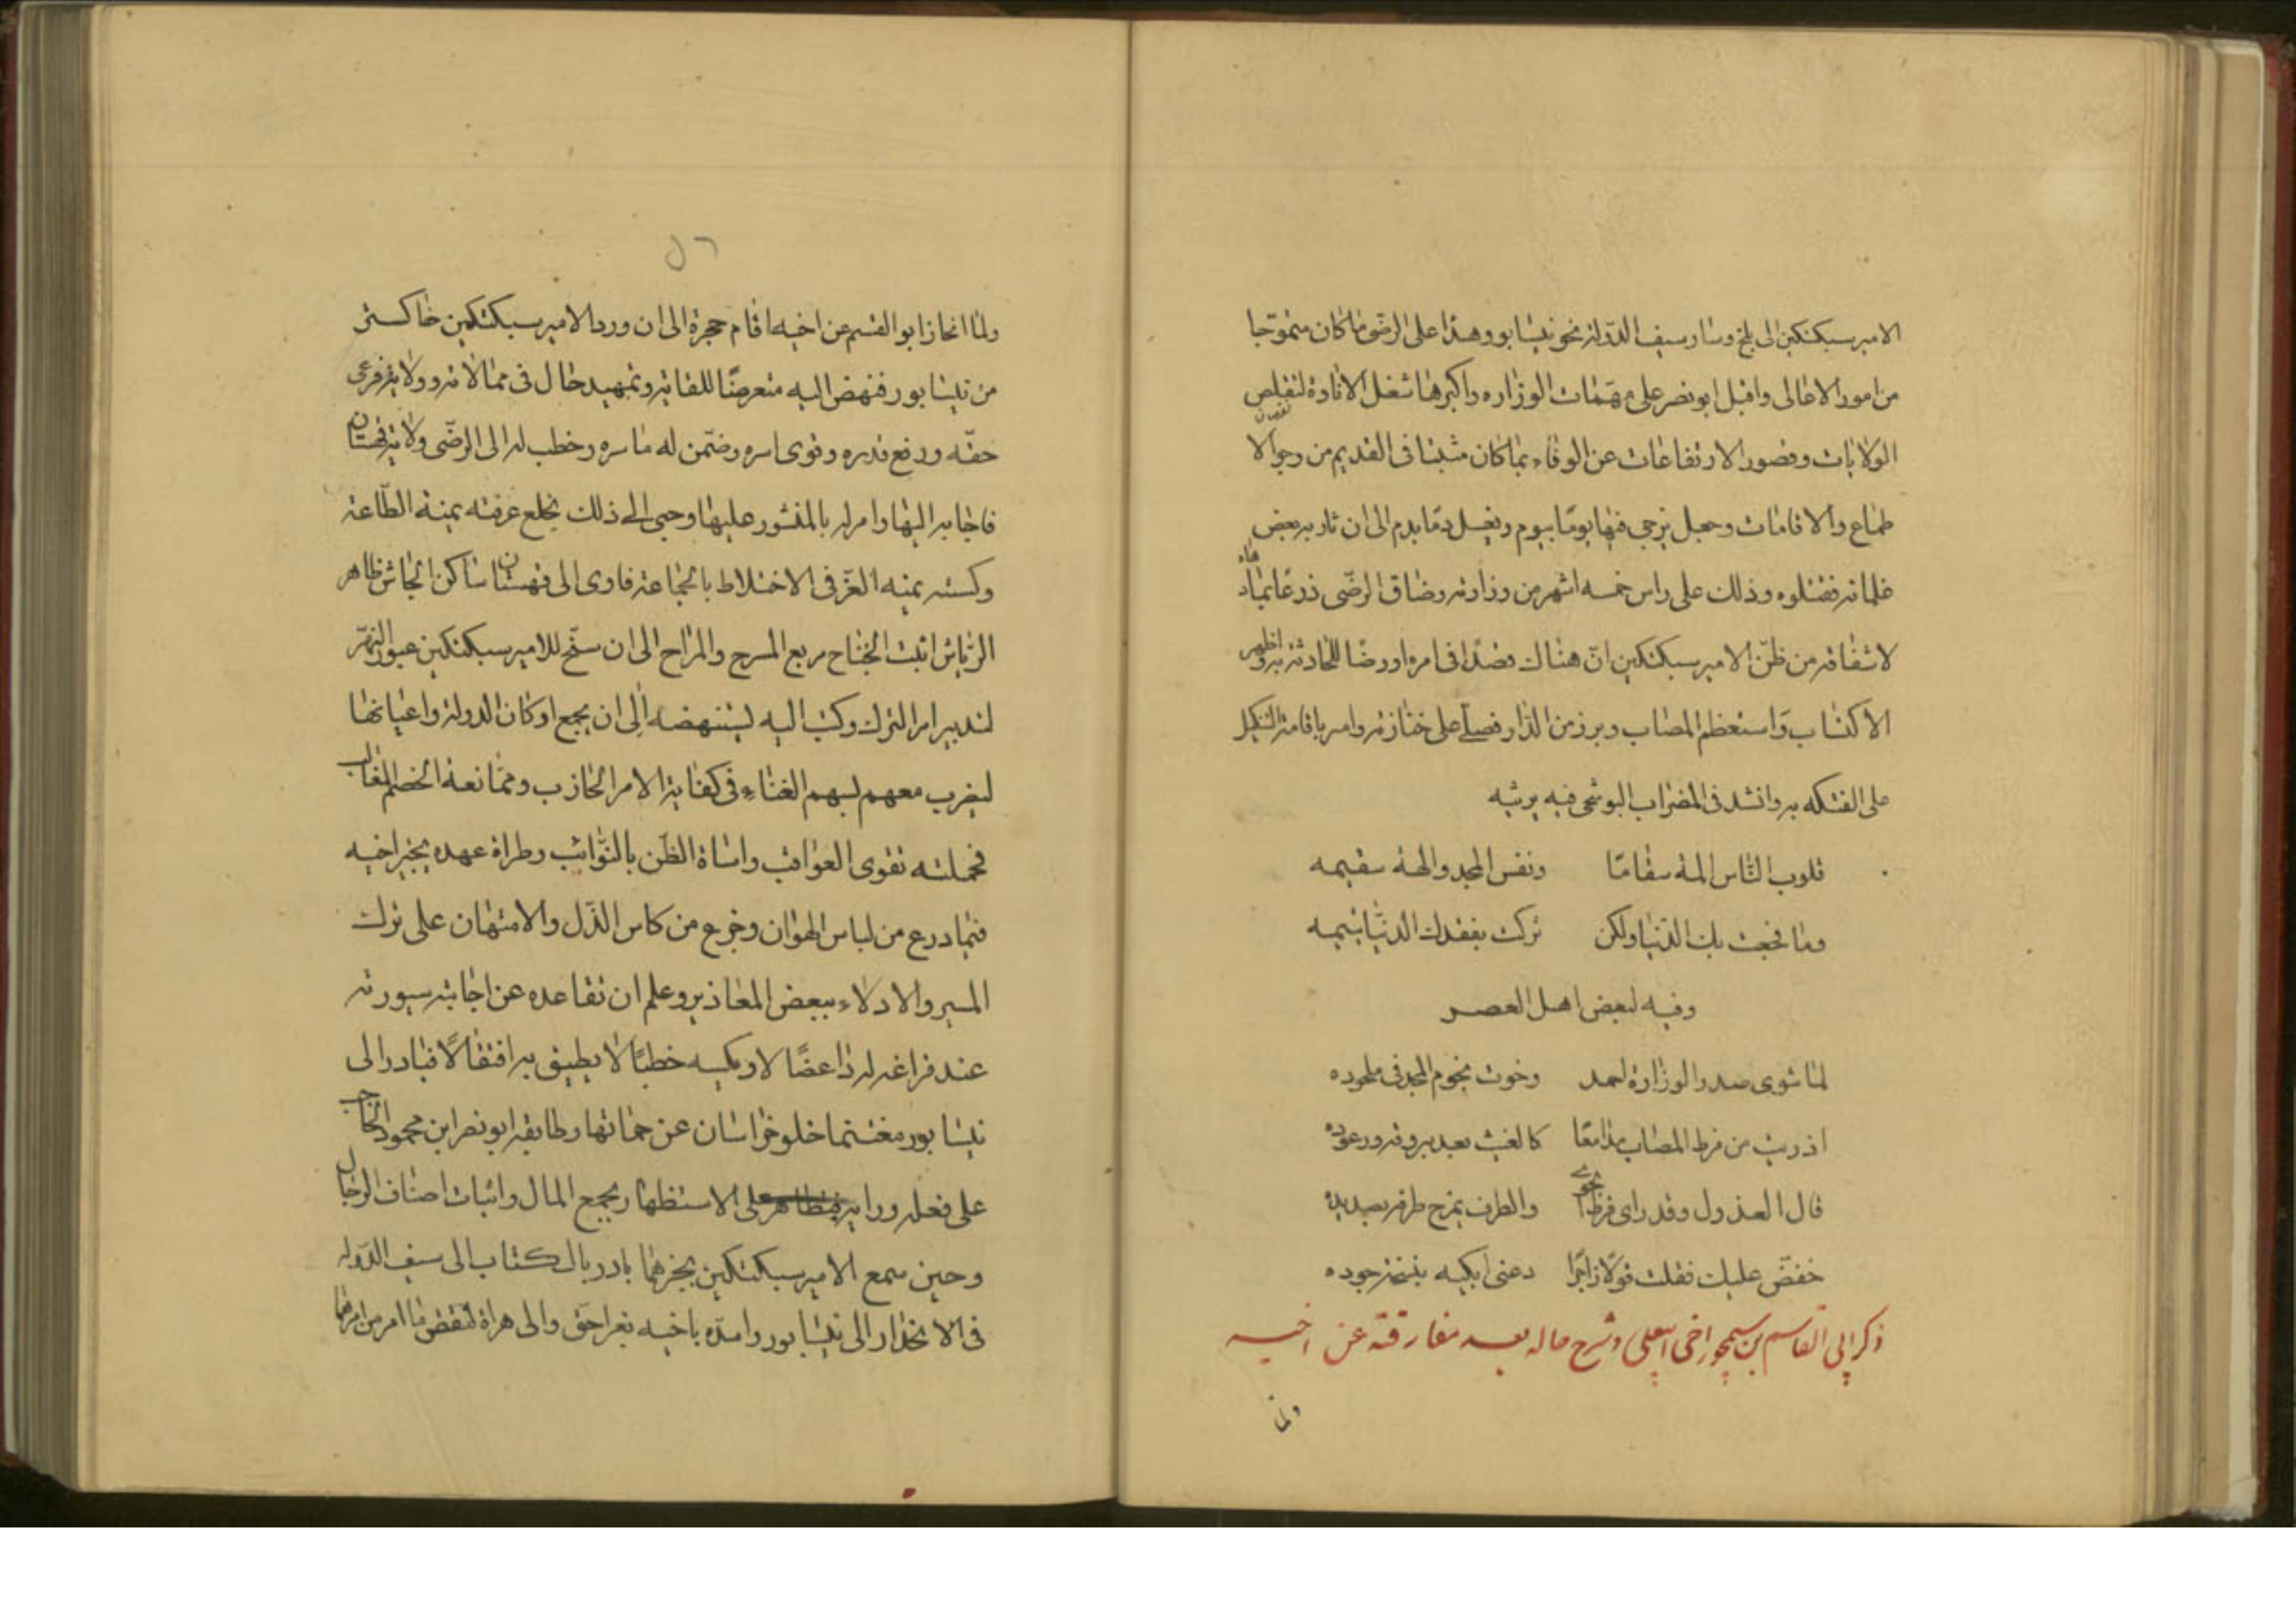 الامير سبكتكين الى بلخ وسار سيف الدولة نحو نيسابور وهدا على الرضى ما كان متموجا
من امور الاهالى واقبل ابو نصر على مهمّات الوزاره واكبرها شغل الاثارة لتقلص
الولايات وقصور الارتفاعات عن الوفاء بما كان مثبتا فى القديم من وجوه الا
طماع والاقامات وجعل يزجى فيها يومًا بيوم ويغسل دمًا بدم الى ان ثار به بعض
غلمانه فقتلوه وذلك على راس خمسه اشهر من وزارته وضاق الرضّى ذرعًا بماد هاه
لاشفاقه من ظنّ الامير سبكتكين انّ هناك قصدًا فى امره اورضًا للحادثة به واظهر
الاكتئاب واستعظم المصاب وبرز من الدّار فصلّى على جنازته وامر باقامة التنكيل
على الفتكه به وانشد فى المضراب البوشنجى فيه يرثيه
قلوب النّاس المة سقاما ونفس المجد والهة سقيمه
وما فجعت بك الدّنيا ولكن تركت بفقدك الدنيا يتيمه
وفيه لبعض اهل العصر
لما ثوى صدر الوزارة احمد وخوت نجوم المجد فى ملحوده
اذريت من فرط المصاب مدامعًا كالغيث بعد بروقه ورعوده
قال العذول وقد راى فرط الجوى والطرف يمزج طرفه بصديده
خفّض عليك فقلت قولًا زاجرًا دعنى ابكيه بنسخة جوده
ذكر ابى القاسم بن سيمجور اخى ابى على وشرح حاله بعد مفارقته عن اخيه
ولما
٥٦
ولمّا انحاز ابو القسم عن اخيه اقام حجرة الى ان ورد الامير سبكتكين خاكستر
من نيسابور فنهض اليه متعرضًا للقائه وتمهيد حال فى ممالاته وولايته فرعى
حقّه ورفع قدره وقوى اسره وضمّن له ما سره وخطب له الى الرضّى ولاية قهستان
فاجابه اليها وامر له بالمنشور عليها وحبى الى ذلك بخلع عرفته يمينه الطّاعة
وكسته يمينه العزّ فى الاختلاط بالجماعة فاوى الى قهستان ساكن الجاش ظاهر
الرياش اثبت الجناح مربع المسرح والمراح الى ان سنح للامير سبكتكين عبور النهر
لتدبير امر الترك وكتب اليه ليستنهضه الى ان يجمع اركان الدولة واعيانها
ليضرب معهم بسهم الغناء فى كفاية الامر الحازب وممانعة الخصم المغالب
فحملته تقوى العواقب واساة الظّن بالنّوائب وطراة عهده بخبر اخيه
فيما درع من لباس الهوان وجرع من كاس الذّل والامتهان على ترك
المسير والادلاء ببعض المعاذير وعلم ان تقاعده عن اجابته سيورثه
عند فراغه له داءً عضالا ويكسبه خطبًا لا يطيق به افتقالًا فبادر الى
نيسابور مغتنما خلو خراسان عن حماتها وطابقه ابو نصر ابن محمود الحاجب
على فعله ورايه على الاستظهار بجمع المال واثبات اصناف الرجال
وحين سمع الامير سبكتكين بخبرهما بادر بالكتاب الى سيف الدّوله
فى الانحدار الى نيسابور وامدّه باخيه بغراجق والى هراة لنقض ما امر من امرهما